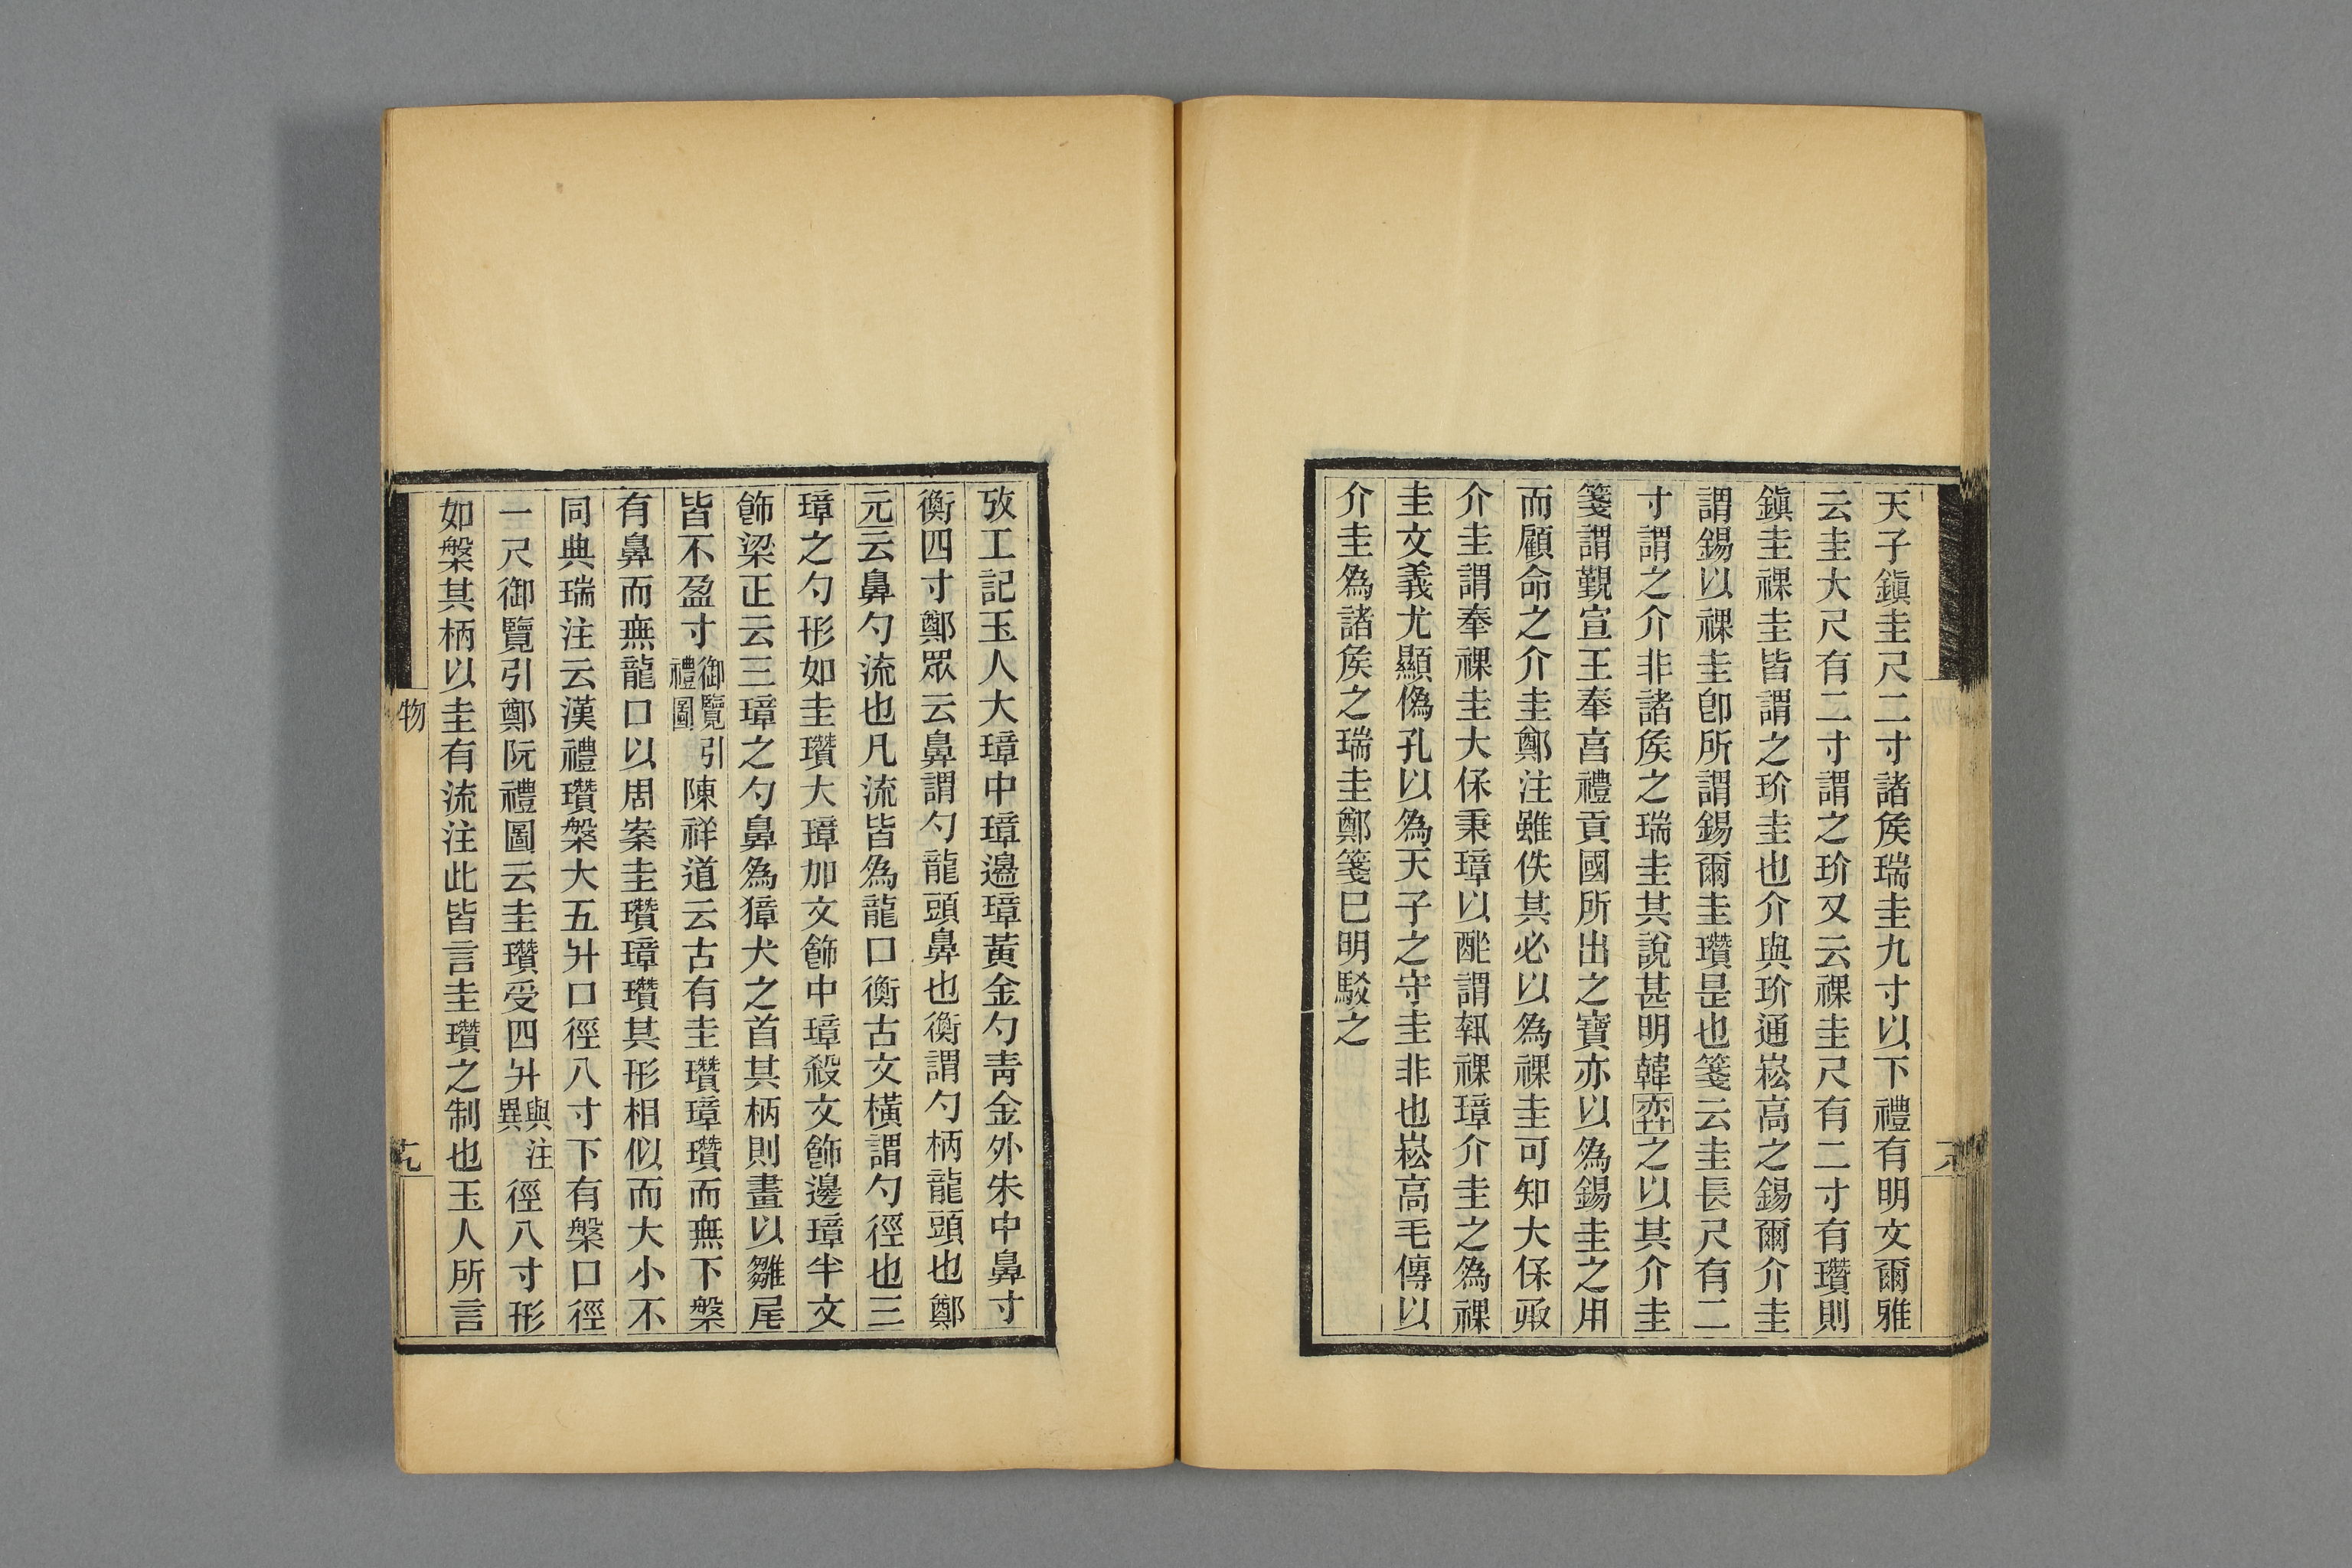 天子鎭圭尺二寸諸矦瑞圭九寸以下禮有明文爾雅
云圭大尺有二寸謂之玠又云祼圭尺有二寸有瓚則
鎭圭祼圭皆謂之玠圭也介與玠通崧高之錫爾介圭
謂錫以祼圭卽所謂錫爾圭瓚是也箋云圭長尺有二
寸謂之介非諸矦之瑞圭其說甚明韓奕之以其介圭
箋謂覲宣王奉亯禮貢國所出之寶亦以爲錫圭之用
而顧命之介圭鄭注雖佚其必以爲祼圭可知大保承
介圭謂奉祼圭大保秉璋以酢謂執祼璋介圭之爲祼
圭文義尤顯僞孔以爲天子之守圭非也崧高毛傳以
介圭爲諸矦之瑞圭鄭箋已明駁之
攷工記玉人大璋中璋邊璋黃金勺靑金外朱中鼻寸
衡四寸鄭眾云鼻謂勺龍頭鼻也衡謂勺柄龍頭也鄭
元云鼻勺流也凡流皆爲龍口衡古文橫謂勺徑也三
璋之勺形如圭瓚大璋加文飾中璋殺文飾邊璋半文
飾梁正云三璋之勺鼻爲獐犬之首其柄則畫以雛尾
皆不盈寸御覽引禮圖陳祥道云古有圭瓚璋瓚而無下槃
有鼻而無龍口以周案圭瓚璋瓚其形相似而大小不
同典瑞注云漢禮瓚槃大五升口徑八寸下有槃口徑
一尺御覽引鄭阮禮圖云圭瓚受四升與注異徑八寸形
如槃其柄以圭有流注此皆言圭瓚之制也玉人所言
物